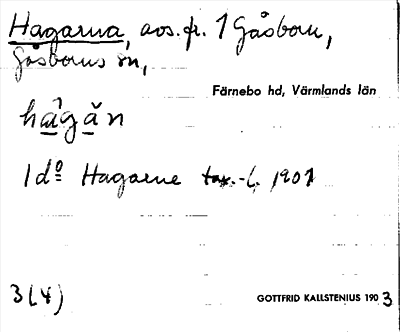 Hagarna, avs. fr. 1 Gåsborn,
Gåsborns sn,
Färnebo hd, Värmlands län
hagăn
1 d:o Hagarne tax.-l. 1901
3(4)
GOTTFRID KALLSTENIUS 1903